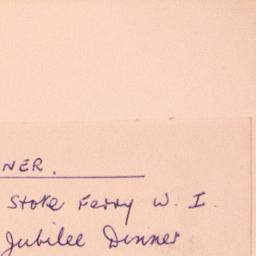 NER.
Stoke Ferry W. I.
Jubilee Dinner